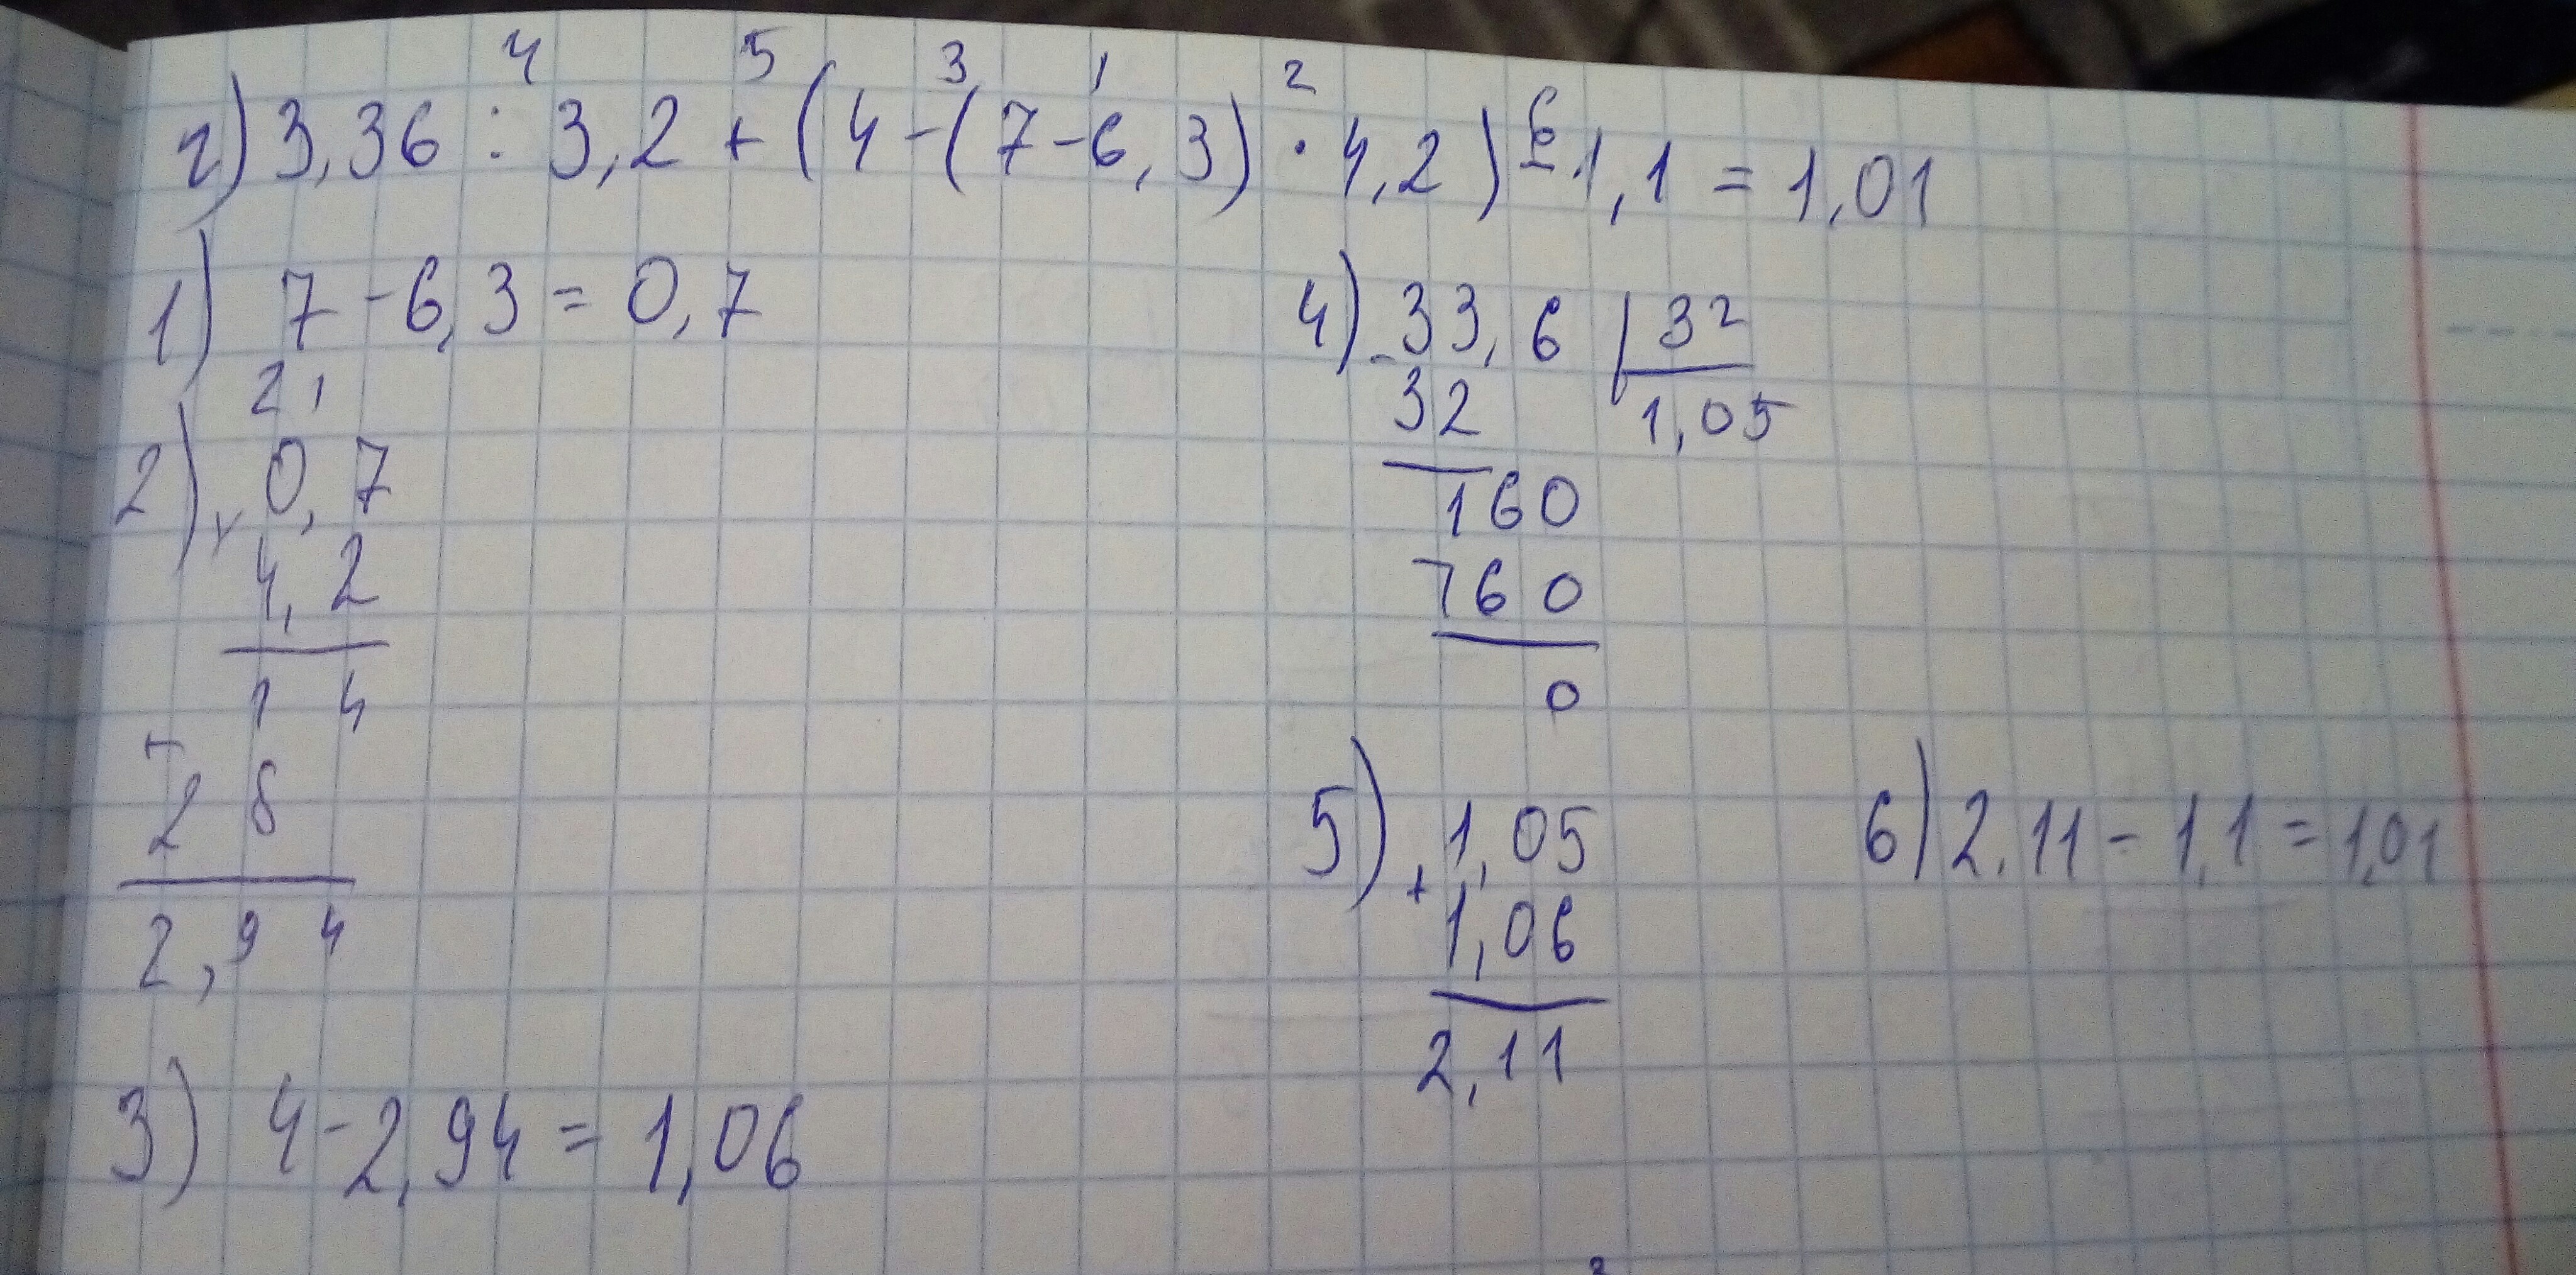 4 5 3 1 2 6
г) 3,36 : 3,2 + (4 - (7 - 6,3) · 4,2) - 1,1 = 1,01
1) 7 - 6,3 = 0,7
2,
2) × 0,7
4,2
1 4
+
2 8
2,9 4
3) 4 - 2,94 = 1,06
4) - 33,6 | 32
32 1,05
160
160
0
5) + 1,05
1,06
2,11
6) 2,11 - 1,1 = 1,01